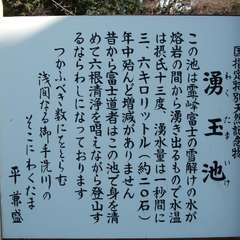 国指定特別天然記念物
わくたまいけ
湧玉池
この池は霊峰富士の雪解けの水が
熔岩の間から湧き出るもので水温
は摂氏十三度、湧水量は一秒間に
三、六キロリットル（約二〇石）
年中殆んど増減がありません
昔から富士道者はこの池で身を清
めて六根清浄を唱えながら登山す
るならわしになっております
つかふべき数にをとらむ
浅間なる御手洗川の
そこにわくたま
平兼盛